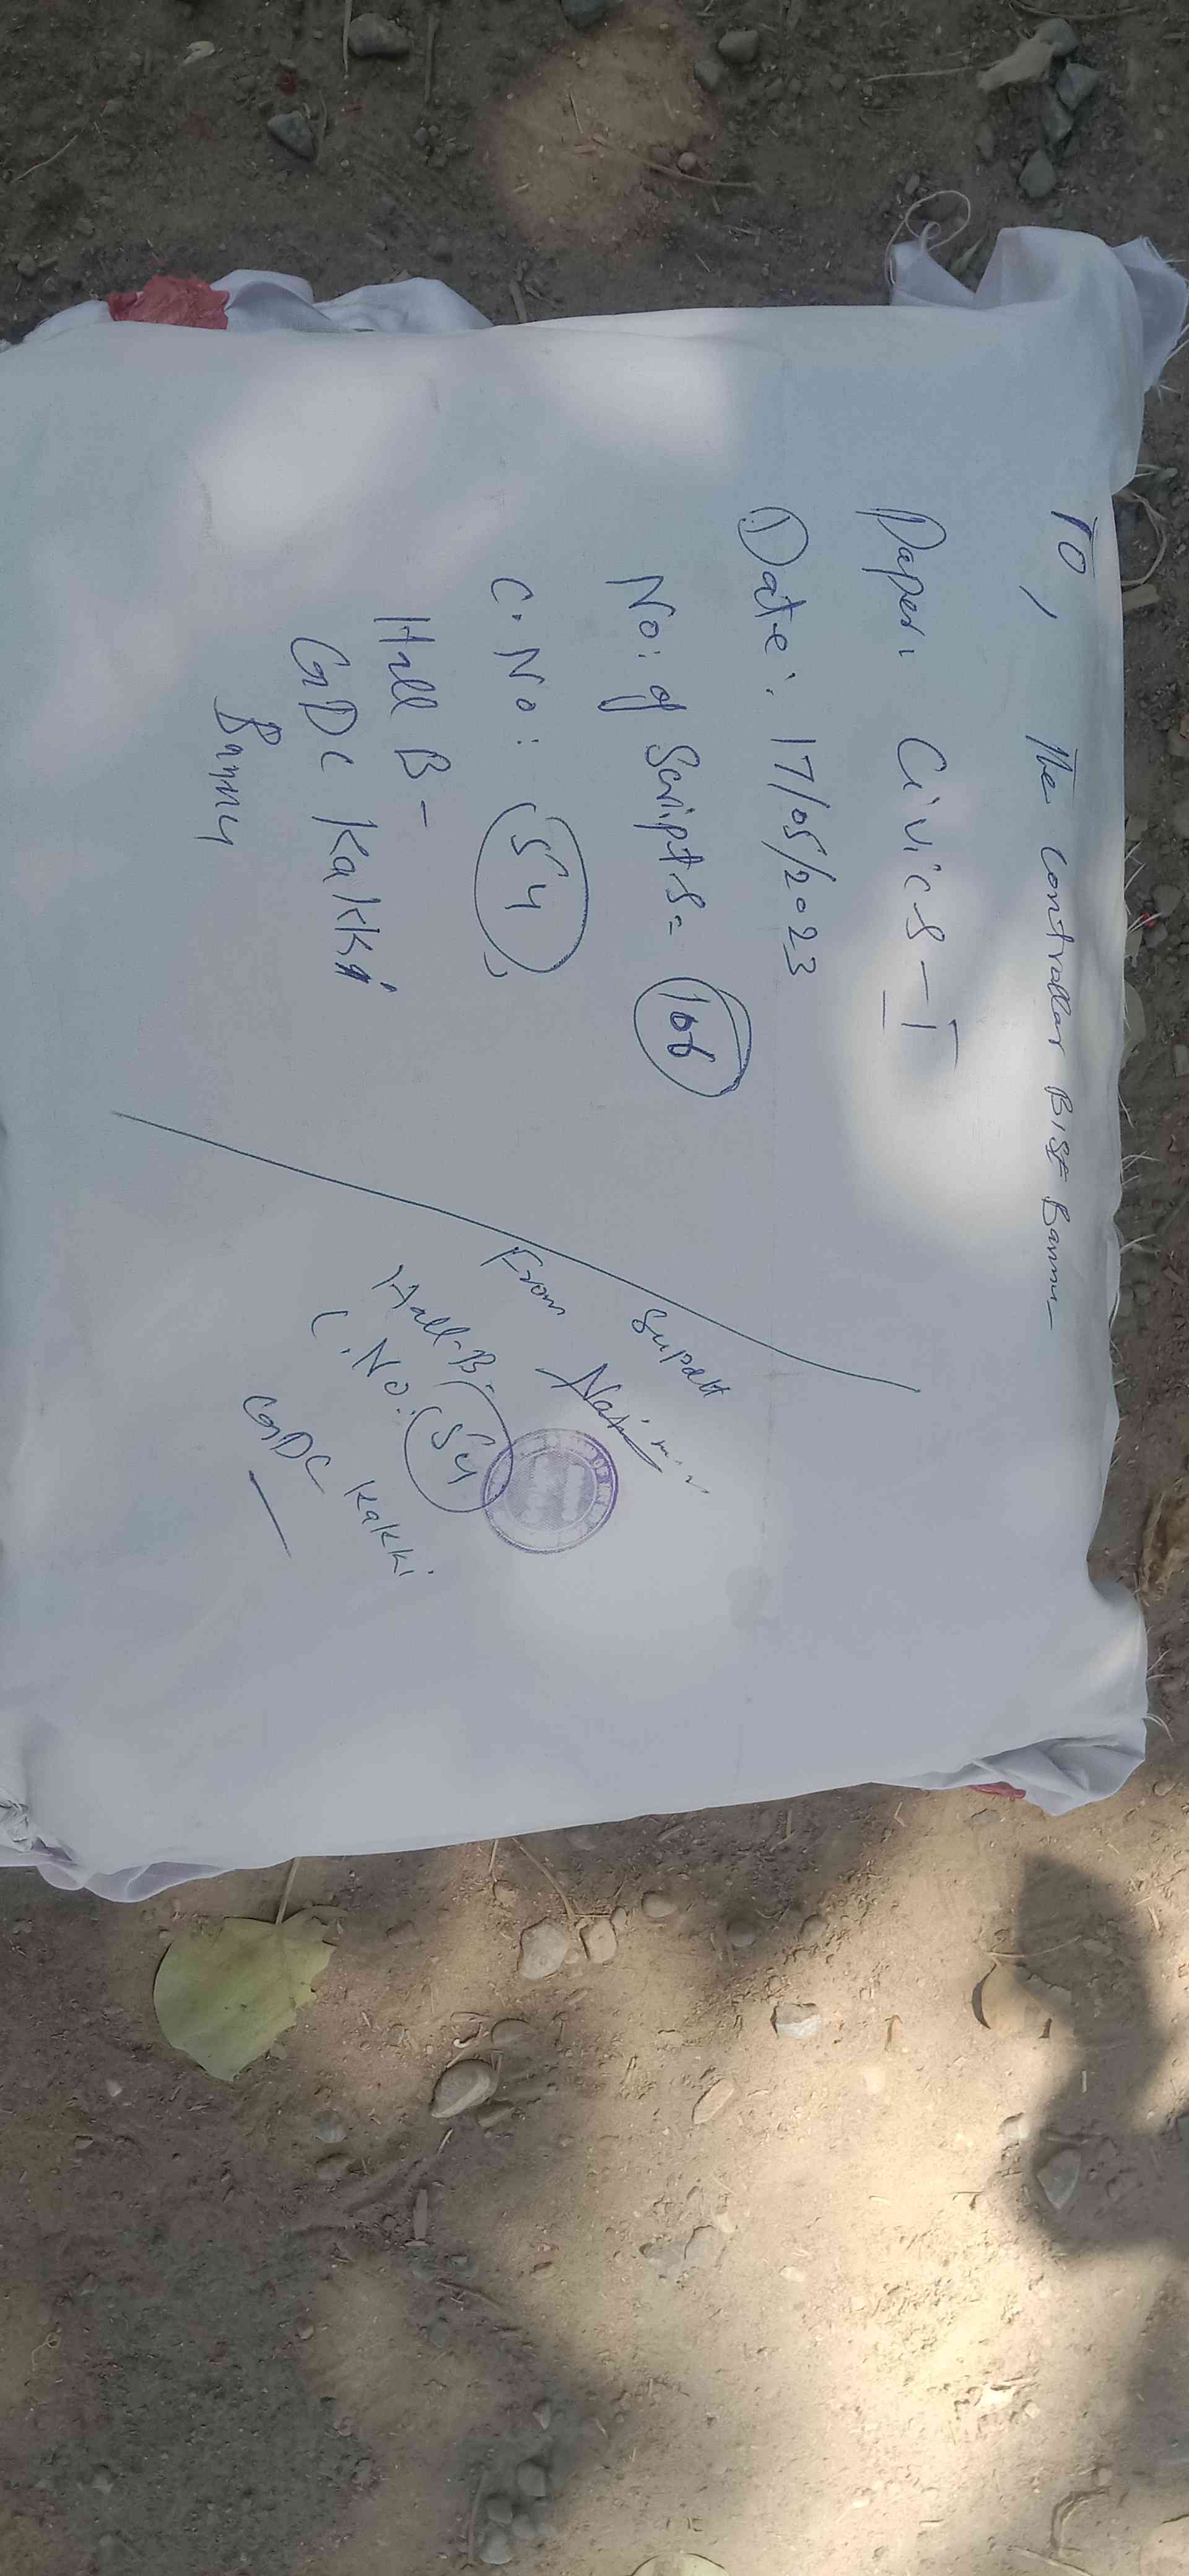 To, The Controllar BISE Bannu
Paper: Civics - I
Date: 17/05/2023
No: of Scripts = 106
C. No: 54
Hall B -
GDC Kakki
Bannu
From Supdtt
Hall-B-
C. No: 54
GDC Kakki